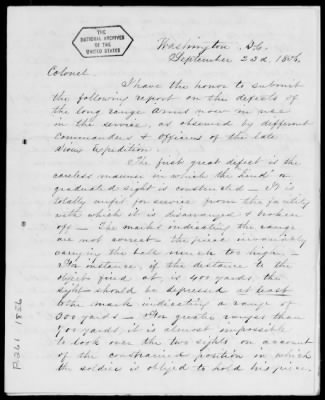 THE
NATIONAL ARCHIVES
OF THE
UNITED STATES
Washington D.C.
September 23d, 1856.
Colonel
I have the honor to submit
the following report on the defects of
the long range Arms now in use
in the service, as observed by different
Commanders & Officers of the late
Sioux Expedition.
The first great defect is the
careless manner in which the hind or
graduated sight is constructed — It is
totally unfit for service from the facility
with which it is disarranged & broken
off — The marks indicating the range
are not correct — the piece invariably
carrying the ball much too high —
For instance, if the distance to the
object fired at, is 400 yards, the
sight should be depressed at least
to the mark indicating a range of
300 yards — For greater ranges than
400 yards, it is almost impossible
to look over the two sights on account
of the constrained position in which
the soldier is obliged to hold his piece,
P.261 1856